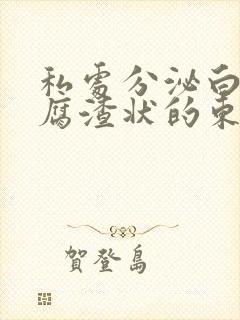 私處分泌白
腐渣狀的東
賀登島